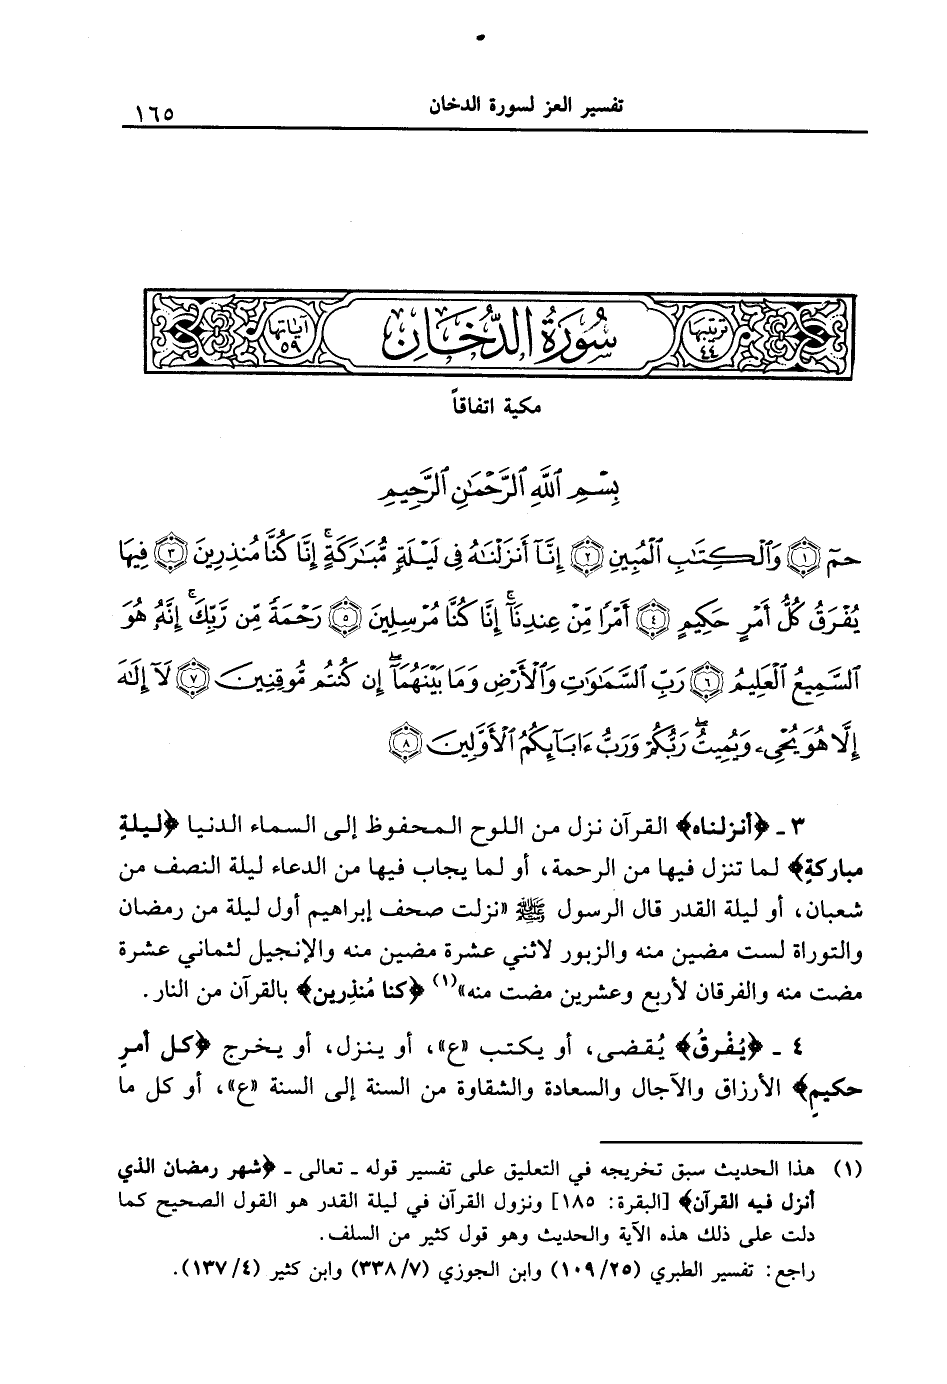 تفسير العز لسورة الدخان
١٦٥
ترتيبها ٤٤
سُورَةُ الدُّخَانِ
آيَاتُهَا ٥٩
مكية اتفاقاً
بِسْمِ ٱللَّهِ ٱلرَّحْمَٰنِ ٱلرَّحِيمِ
حمٓ ﴿١﴾ وَٱلْكِتَٰبِ ٱلْمُبِينِ ﴿٢﴾ إِنَّآ أَنزَلْنَٰهُ فِى لَيْلَةٍ مُّبَٰرَكَةٍ ۚ إِنَّا كُنَّا مُنذِرِينَ ﴿٣﴾ فِيهَا
يُفْرَقُ كُلُّ أَمْرٍ حَكِيمٍ ﴿٤﴾ أَمْرًا مِّنْ عِندِنَآ ۚ إِنَّا كُنَّا مُرْسِلِينَ ﴿٥﴾ رَحْمَةً مِّن رَّبِّكَ ۚ إِنَّهُۥ هُوَ
ٱلسَّمِيعُ ٱلْعَلِيمُ ﴿٦﴾ رَبِّ ٱلسَّمَٰوَٰتِ وَٱلْأَرْضِ وَمَا بَيْنَهُمَآ ۖ إِن كُنتُم مُّوقِنِينَ ﴿٧﴾ لَآ إِلَٰهَ
إِلَّا هُوَ يُحْىِۦ وَيُمِيتُ ۖ رَبُّكُمْ وَرَبُّ ءَابَآئِكُمُ ٱلْأَوَّلِينَ ﴿٨﴾
٣ ـ ﴿أنزلناه﴾ القرآن نزل من اللوح المحفوظ إلى السماء الدنيا ﴿ليلةٍ
مباركةٍ﴾ لما تنزل فيها من الرحمة، أو لما يجاب فيها من الدعاء ليلة النصف من
شعبان، أو ليلة القدر قال الرسول ﷺ «نزلت صحف إبراهيم أول ليلة من رمضان
والتوراة لست مضين منه والزبور لاثني عشرة مضين منه والإنجيل لثماني عشرة
مضت منه والفرقان لأربع وعشرين مضت منه»(١) ﴿كنا مُنذِرين﴾ بالقرآن من النار.
٤ ـ ﴿يُفْرقُ﴾ يُقضى، أو يكتب «ع»، أو ينزل، أو يخرج ﴿كل أمرٍ
حكيمٍ﴾ الأرزاق والآجال والسعادة والشقاوة من السنة إلى السنة «ع»، أو كل ما
(١) هذا الحديث سبق تخريجه في التعليق على تفسير قوله ـ تعالى ـ ﴿شهر رمضان الذي
أنزل فيه القرآن﴾ [البقرة: ١٨٥] ونزول القرآن في ليلة القدر هو القول الصحيح كما
دلت على ذلك هذه الآية والحديث وهو قول كثير من السلف.
راجع: تفسير الطبري (١٠٩/٢٥) وابن الجوزي (٣٣٨/٧) وابن كثير (١٣٧/٤).